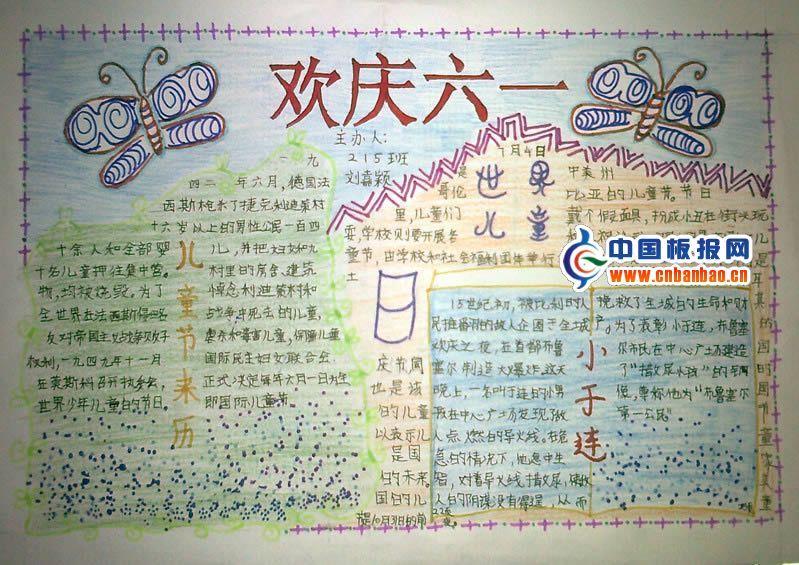 欢庆六一
主办人:
215班
刘嘉颖
儿童节来历
一九
四二 年六月,德国法
西斯枪杀了捷克利迪策村
十六岁以上的男性公民一百四
十余人和全部婴
儿,并把妇女和九
十名儿童押往集中营。
村里的房舍、建筑
物,均被烧毁。为了
悼念利迪策村和
全世界
战争中死去的儿童,
反对帝国主义战争贩
虐杀和毒害儿童,保障儿童
权利,一九四九年十一月
国际民主妇女联合会
在莫斯科召开执委会,
正式决定每年六月一日为全
世界少年儿童的节日。
即国际儿童节
世界儿童日
7月4日
是
中美洲
哥伦
比亚的儿童节。节日
里,儿童们
戴个假面具,扮成小丑在街头玩
耍,学校则要开展各
童节,由学校和社会福利团体举行
土
庆节周
也是该
的儿童
以表示儿
是国
的未来
国的儿
小于连
15世纪初,被比利时人
民推翻的敌人企图于全城
欢庆之夜,在首都布鲁
塞尔制造大爆炸,这天
晚上,一名叫于连的小男
孩在中心广场发现了敌
人点燃的导火线。在危
急的情况下,他急中生
智,对着导火线撒尿,使敌
人的阴谋没有得逞,从而
挽救了全城的生命和财
产。为了表彰小于连,布鲁塞
尔市民在中心广场建造
了“撒尿小孩”的
像,尊称他为“布鲁塞尔
第一公民”
中国板报网
www.cnbanbao.cn